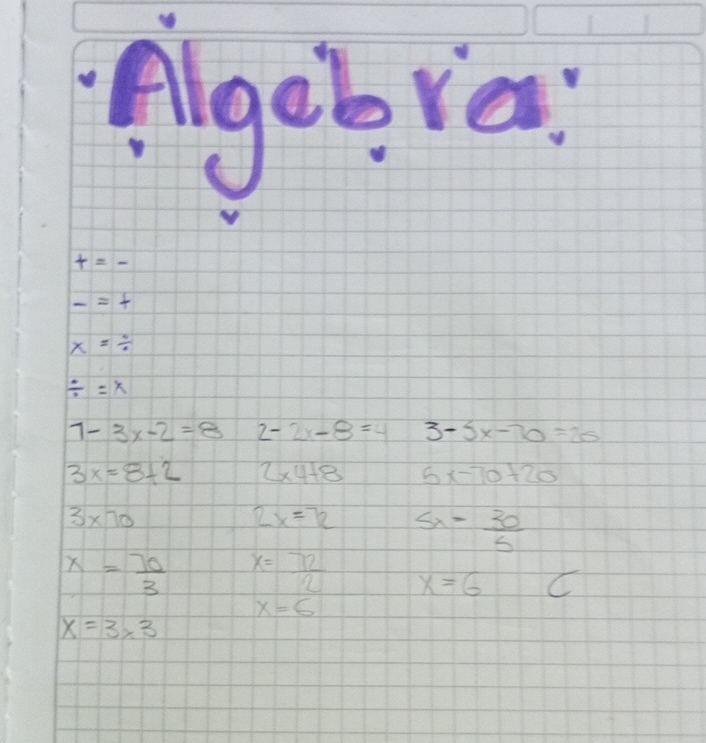 Algebra
+ = -
- = +
x = ÷
÷ = x
1- 3x-2=8
3x=8+2
3x10
x = 10/3
x=3x3
2- 2x-8=4
2x4+8
2x=12
x= 12/2
x=6
3- 5x-10=20
5x-10+20
5x= 30/5
x=6 C